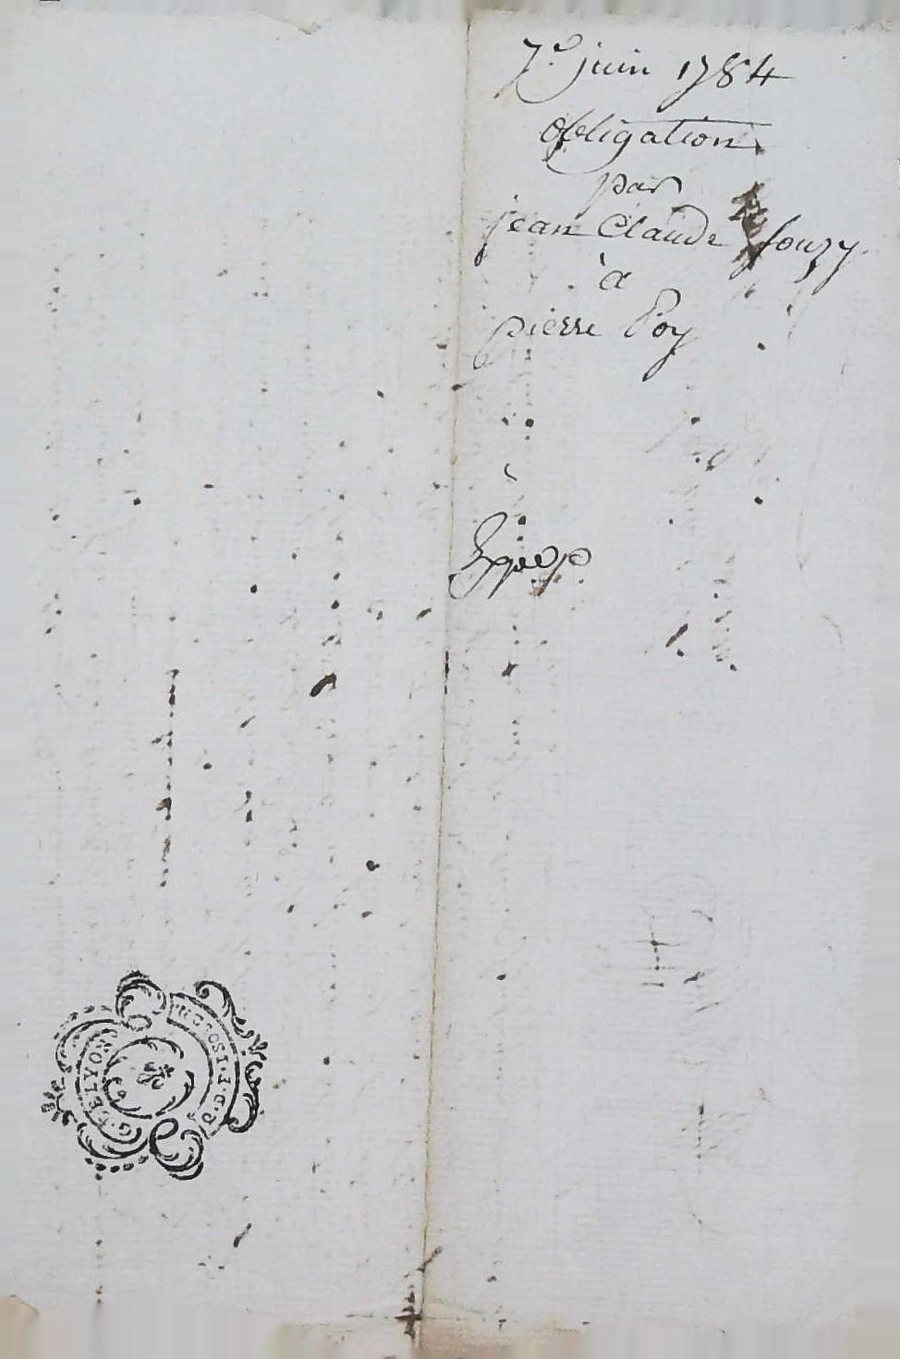 7.e juin 1784
obligation
par
jean Claude
à
pierre Poy
G. DE LYON